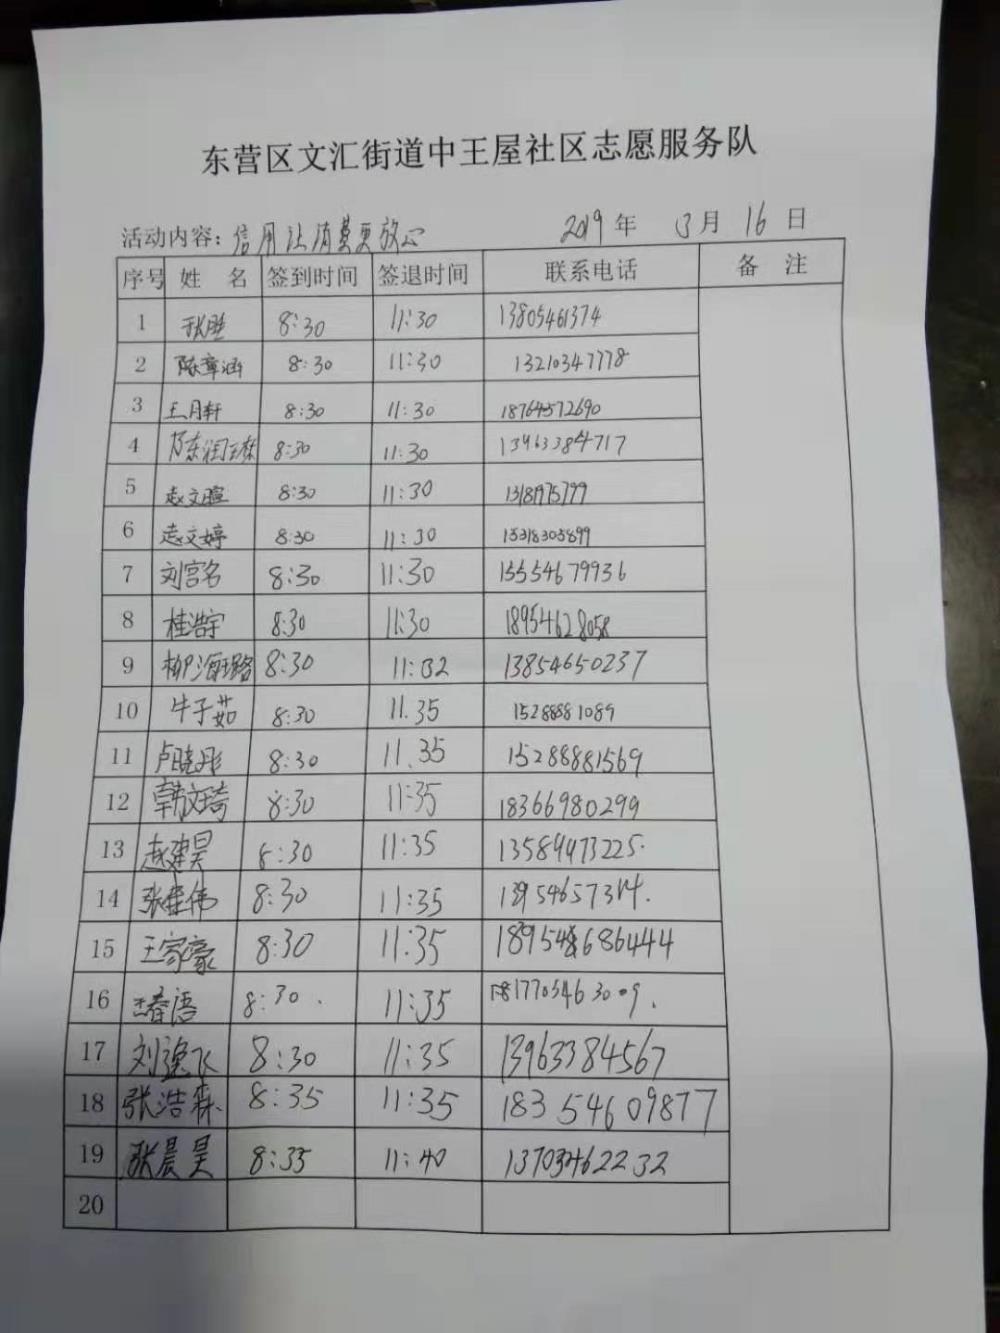 东营区文汇街道中王屋社区志愿服务队
活动内容：信用让消费更放心 2019年 3月 16日
序号 姓 名 签到时间 签退时间 联系电话 备 注
1 张胜 8:30 11:30 13805461374
2 陈章涵 8:30 11:30 13210347778
3 王月轩 8:30 11:30 18764572690
4 8:30 11:30 13963384717
5 赵文暄 8:30 11:30 13181975799
6 赵文婷 8:30 11:30 15318303899
7 刘宫名 8:30 11:30 15554679936
8 桂浩宇 8:30 11:30 18954628058
9 柳海璐 8:30 11:32 13854650237
10 牛子茹 8:30 11.35 15288881089
11 卢晓彤 8:30 11.35 15288881569
12 韩文琦 8:30 11:35 18366980299
13 赵建昊 8:30 11:35 13589473225.
14 张佳伟 8:30 11:35
15 王家豪 8:30 11:35
16 8:30. 11:35
17 刘逸飞 8:30 11:35 13963384567
18 张浩森 8:35 11:35 18354609877
19 张晨昊 8:35 11:40 13703462232
20